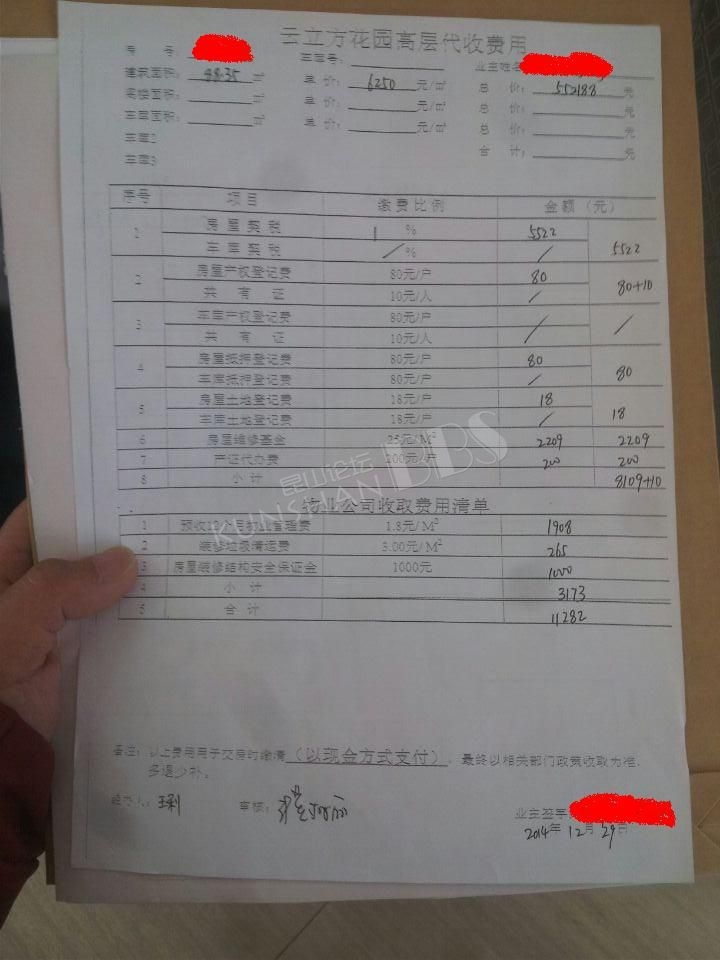 云立方花园高层代收费用
房 号: 车库号: 业主姓名
建筑面积: 88.35 ㎡ 单 价: 6250 元/㎡ 总 价: 552188 元
阁楼面积: ㎡ 单 价: 元/㎡ 总 价: 元
车库面积: ㎡ 单 价: 元/㎡ 总 价: 元
车库2 合 计: 元
车库3
序号 项目 缴费比例 金额（元）
1 房屋契税 1 % 5522
车库契税 / % / 5522
2 房屋产权登记费 80元/户 80
共有证 10元/人 / 80+10
3 车库产权登记费 80元/户
共有证 10元/人 / /
4 房屋抵押登记费 80元/户 80
车库抵押登记费 80元/户 / 80
5 房屋土地登记费 18元/户 18
车库土地登记费 18元/户 / 18
6 房屋维修基金 25元/M² 2209 2209
7 产证代办费 200元/户 200 200
8 小计 8109+10
物业公司收取费用清单
1 预收12个月物业管理费 1.8元/M² 1908
2 装修垃圾清运费 3.00元/M² 265
3 房屋装修结构安全保证金 1000元 1000
4 小计 3173
5 合计 11282
备注: 以上费用用于交房时缴清（以现金方式支付）, 最终以相关部门政策收取为准,
多退少补。
经办人: 审核: 业主签字
2014年 12月 29日
昆山论坛
KUNSHAN BBS